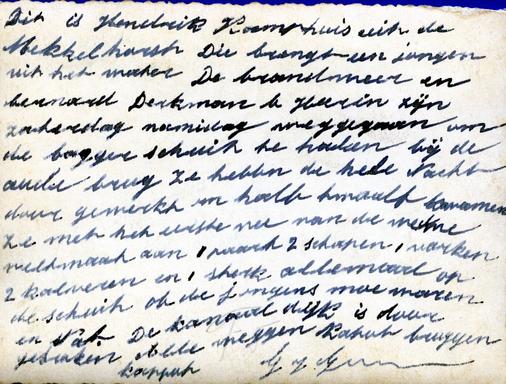 Dit is Hendrik Kamphuis uit de
Mekkelhorst Die brengt een jongen
uit het water De brandmeer en
bernard Derkman b Heerin zijn
zaterdag namidag weggegaan om
de bagger schuit te halen bij de
oude brug Ze hebbn de hele Nacht
door gewerkt en half twaalf kwamen
ze met het eerste vee van de
aan 1 paard 2 schapen 1 varken
2 kalveren en 1 sterk allemaal op
de schuit ob de jongens moe waren
en nat. De kanaal dijk is door
gebroken Alle weggen kapot bruggen
kappot